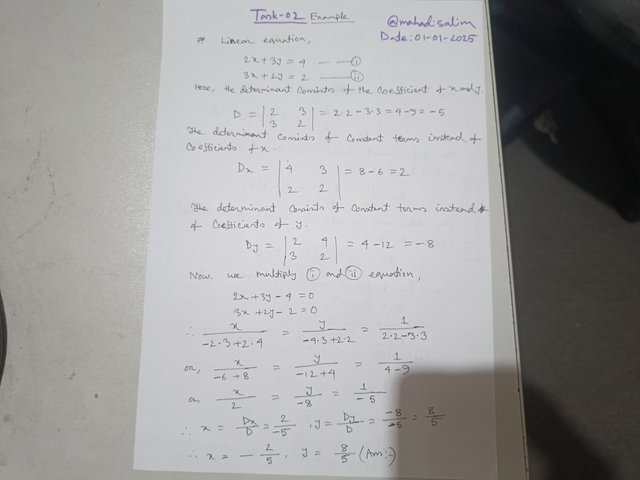 Task-02 Example
@mahadi.salim
Date: 01-01-2025
# Linear equation,
2x+3y = 4 — — (i)
3x+2y = 2 —— (ii)
Here, the determinant consists of the coefficient of x and y.
D = | 2 3 | = 2.2 - 3.3 = 4-9 = -5
3 2
The determinant consists of constant terms instead of
coefficients of x.
Dx = | 4 3 | = 8 - 6 = 2
2 2
The determinant consists of constant terms instead of
of coefficients of y.
Dy = | 2 4 | = 4 - 12 = -8
3 2
Now, we multiply (i) and (ii) equation,
2x+3y-4 = 0
3x+2y-2 = 0
∴ x/(-2.3+2.4) = y/(-4.3+2.2) = 1/(2.2-3.3)
or, x/(-6+8) = y/(-12+4) = 1/(4-9)
or, x/2 = y/-8 = 1/-5
∴ x = Dx/D = 2/-5, y = Dy/D = -8/-5 = 8/5
∴ x = - 2/5, y = 8/5 (Ans:-)